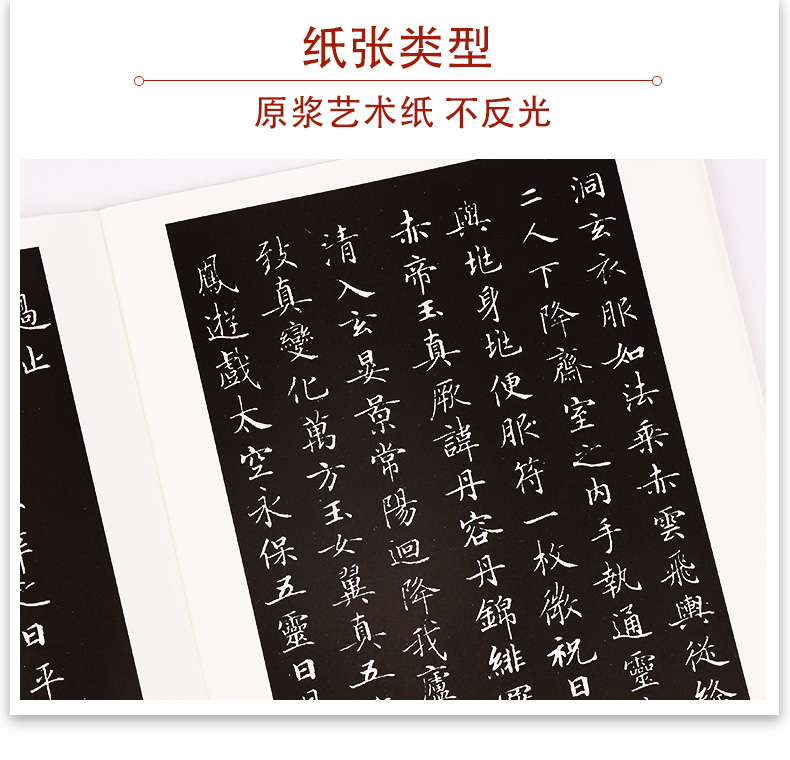 纸张类型
原浆艺术纸 不反光
洞玄衣服如法乘赤雲飛輿從絳
二人下降齋室之内手執通靈
與地身地便服符一枚微祝曰
赤帝玉真厥諱丹容丹錦緋
清入玄晏景常陽迴降我廬
致真變化萬方玉女翼真五
鳳遊戲太空永保五靈日
過止
之日平